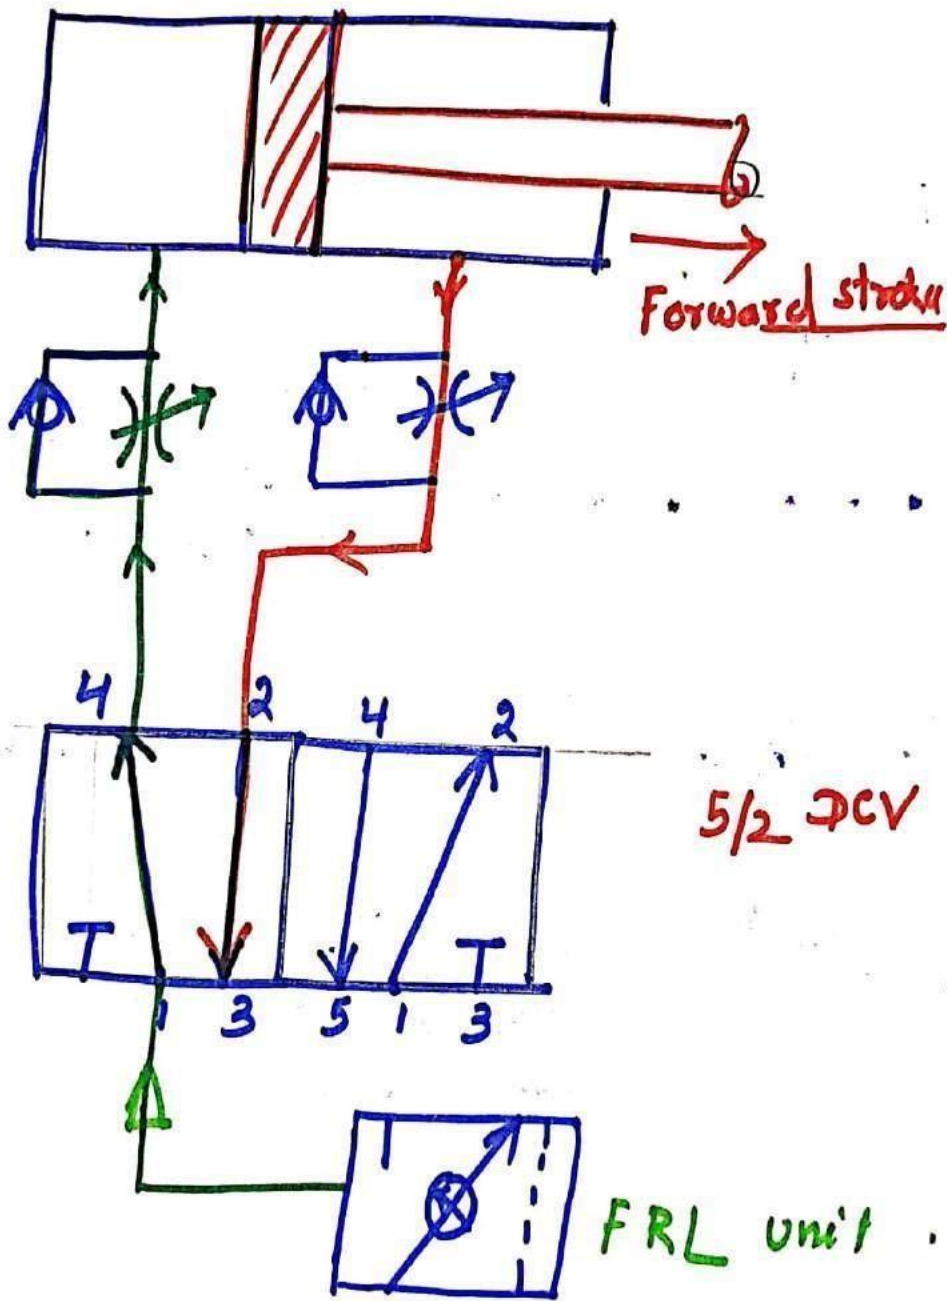 Forward stroke
4 2 4 2
5/2 DCV
1 3 5 1 3
FRL unit.